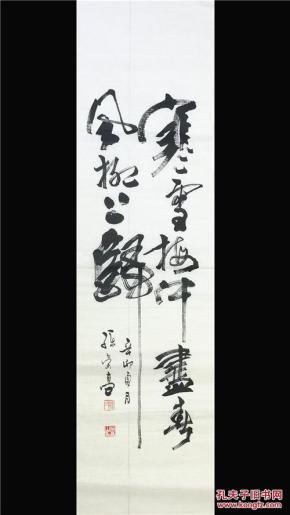 寒雪梅中盡春
風柳上歸
辛卯月
孔夫子旧书网